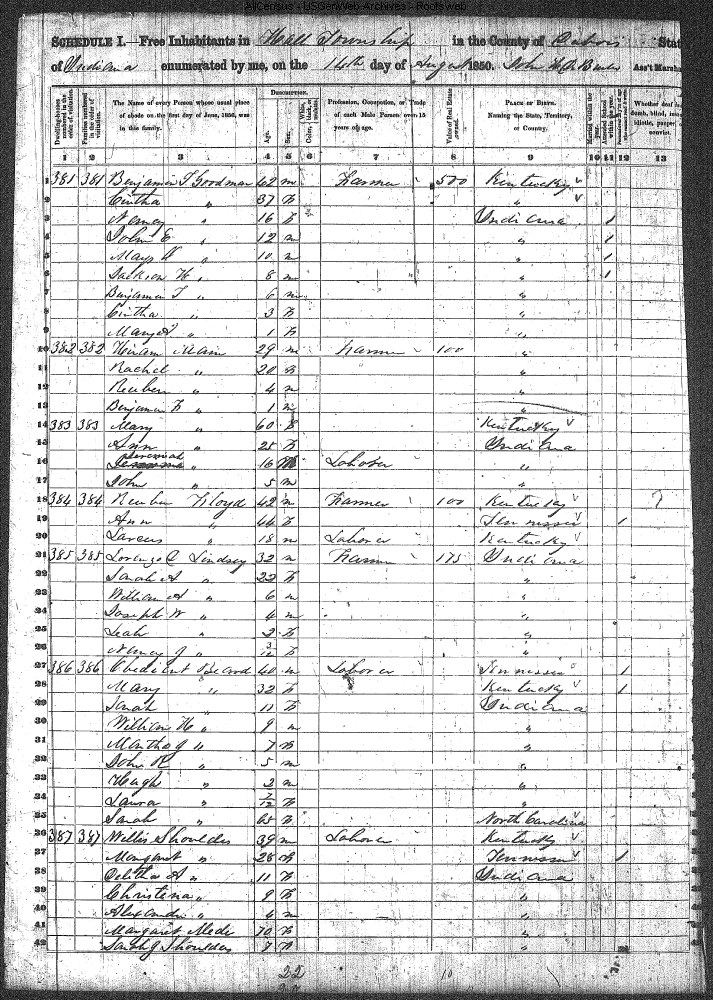 AllCensus - USGenWeb Archives - Rootsweb
SCHEDULE I.—Free Inhabitants in Hall Township in the County of Dubois State
of Indiana enumerated by me, on the 14th day of August 1850. Ass't Marshal
Dwelling-houses numbered in the order of visitation. Families numbered in the order of visitation. The Name of every Person whose usual place of abode on the first day of June, 1850, was in this family. DESCRIPTION. Age. Sex. Color, White, black, or mulatto. Profession, Occupation, or Trade of each Male Person over 15 years of age. Value of Real Estate owned. PLACE OF BIRTH. Naming the State, Territory, or Country. Married within the year. Attended School within the year. Whether deaf and dumb, blind, insane, idiotic, pauper, or convict.
1 2 3 4 5 6 7 8 9 10 11 12 13
1 381 381 Benjamin T Goodman 62 m Farmer 500 Kentucky
2 Cintha " 37 F "
3 Nancy " 16 F Indiana 1
4 John E " 12 m " 1
5 Mary " 10 " 1
6 Jackson H " 8 m " 1
7 Benjamin T " 6 m "
8 Cintha " 3 F "
9 Mary A " 1 F "
10 382 382 Hiram Main 29 m Farmer 100 "
11 Rachel " 20 F "
12 Reuben " 4 m "
13 Benjamin F " 1 m "
14 383 383 Mary " 60 F Kentucky
15 Ann " 25 F Indiana
16 Jeremiah " 16 M Laborer "
17 John " 5 m "
18 384 384 Reuben Floyd 42 m Farmer 100 Kentucky ?
19 Ann " 44 F Tennessee 1
20 " 18 m Laborer Kentucky
21 385 385 Lorenzo C Lindsey 32 m Farmer 175 Indiana
22 Sarah A " 22 F "
23 William A " 6 m "
24 Joseph W " 4 m "
25 Leah " 2 F "
26 Nancy J " 3/12 F "
27 386 386 Obedient Beard 40 m Laborer Tennessee 1
28 Mary " 32 F Kentucky 1
29 Sarah " 11 F Indiana
30 William H " 9 m "
31 Martha J " 7 F "
32 John R " 5 m "
33 Hugh " 2 m "
34 Laura " 7/12 F "
35 Sarah " 65 F North Carolina
36 387 387 Willis Shoulders 39 m Laborer Kentucky
37 Margaret " 28 F Tennessee 1
38 A " 11 F Indiana
39 Christena " 9 F "
40 Alexander " 4 m "
41 Margaret 10 F "
42 Sarah J Shoulders 7 F "
22
10